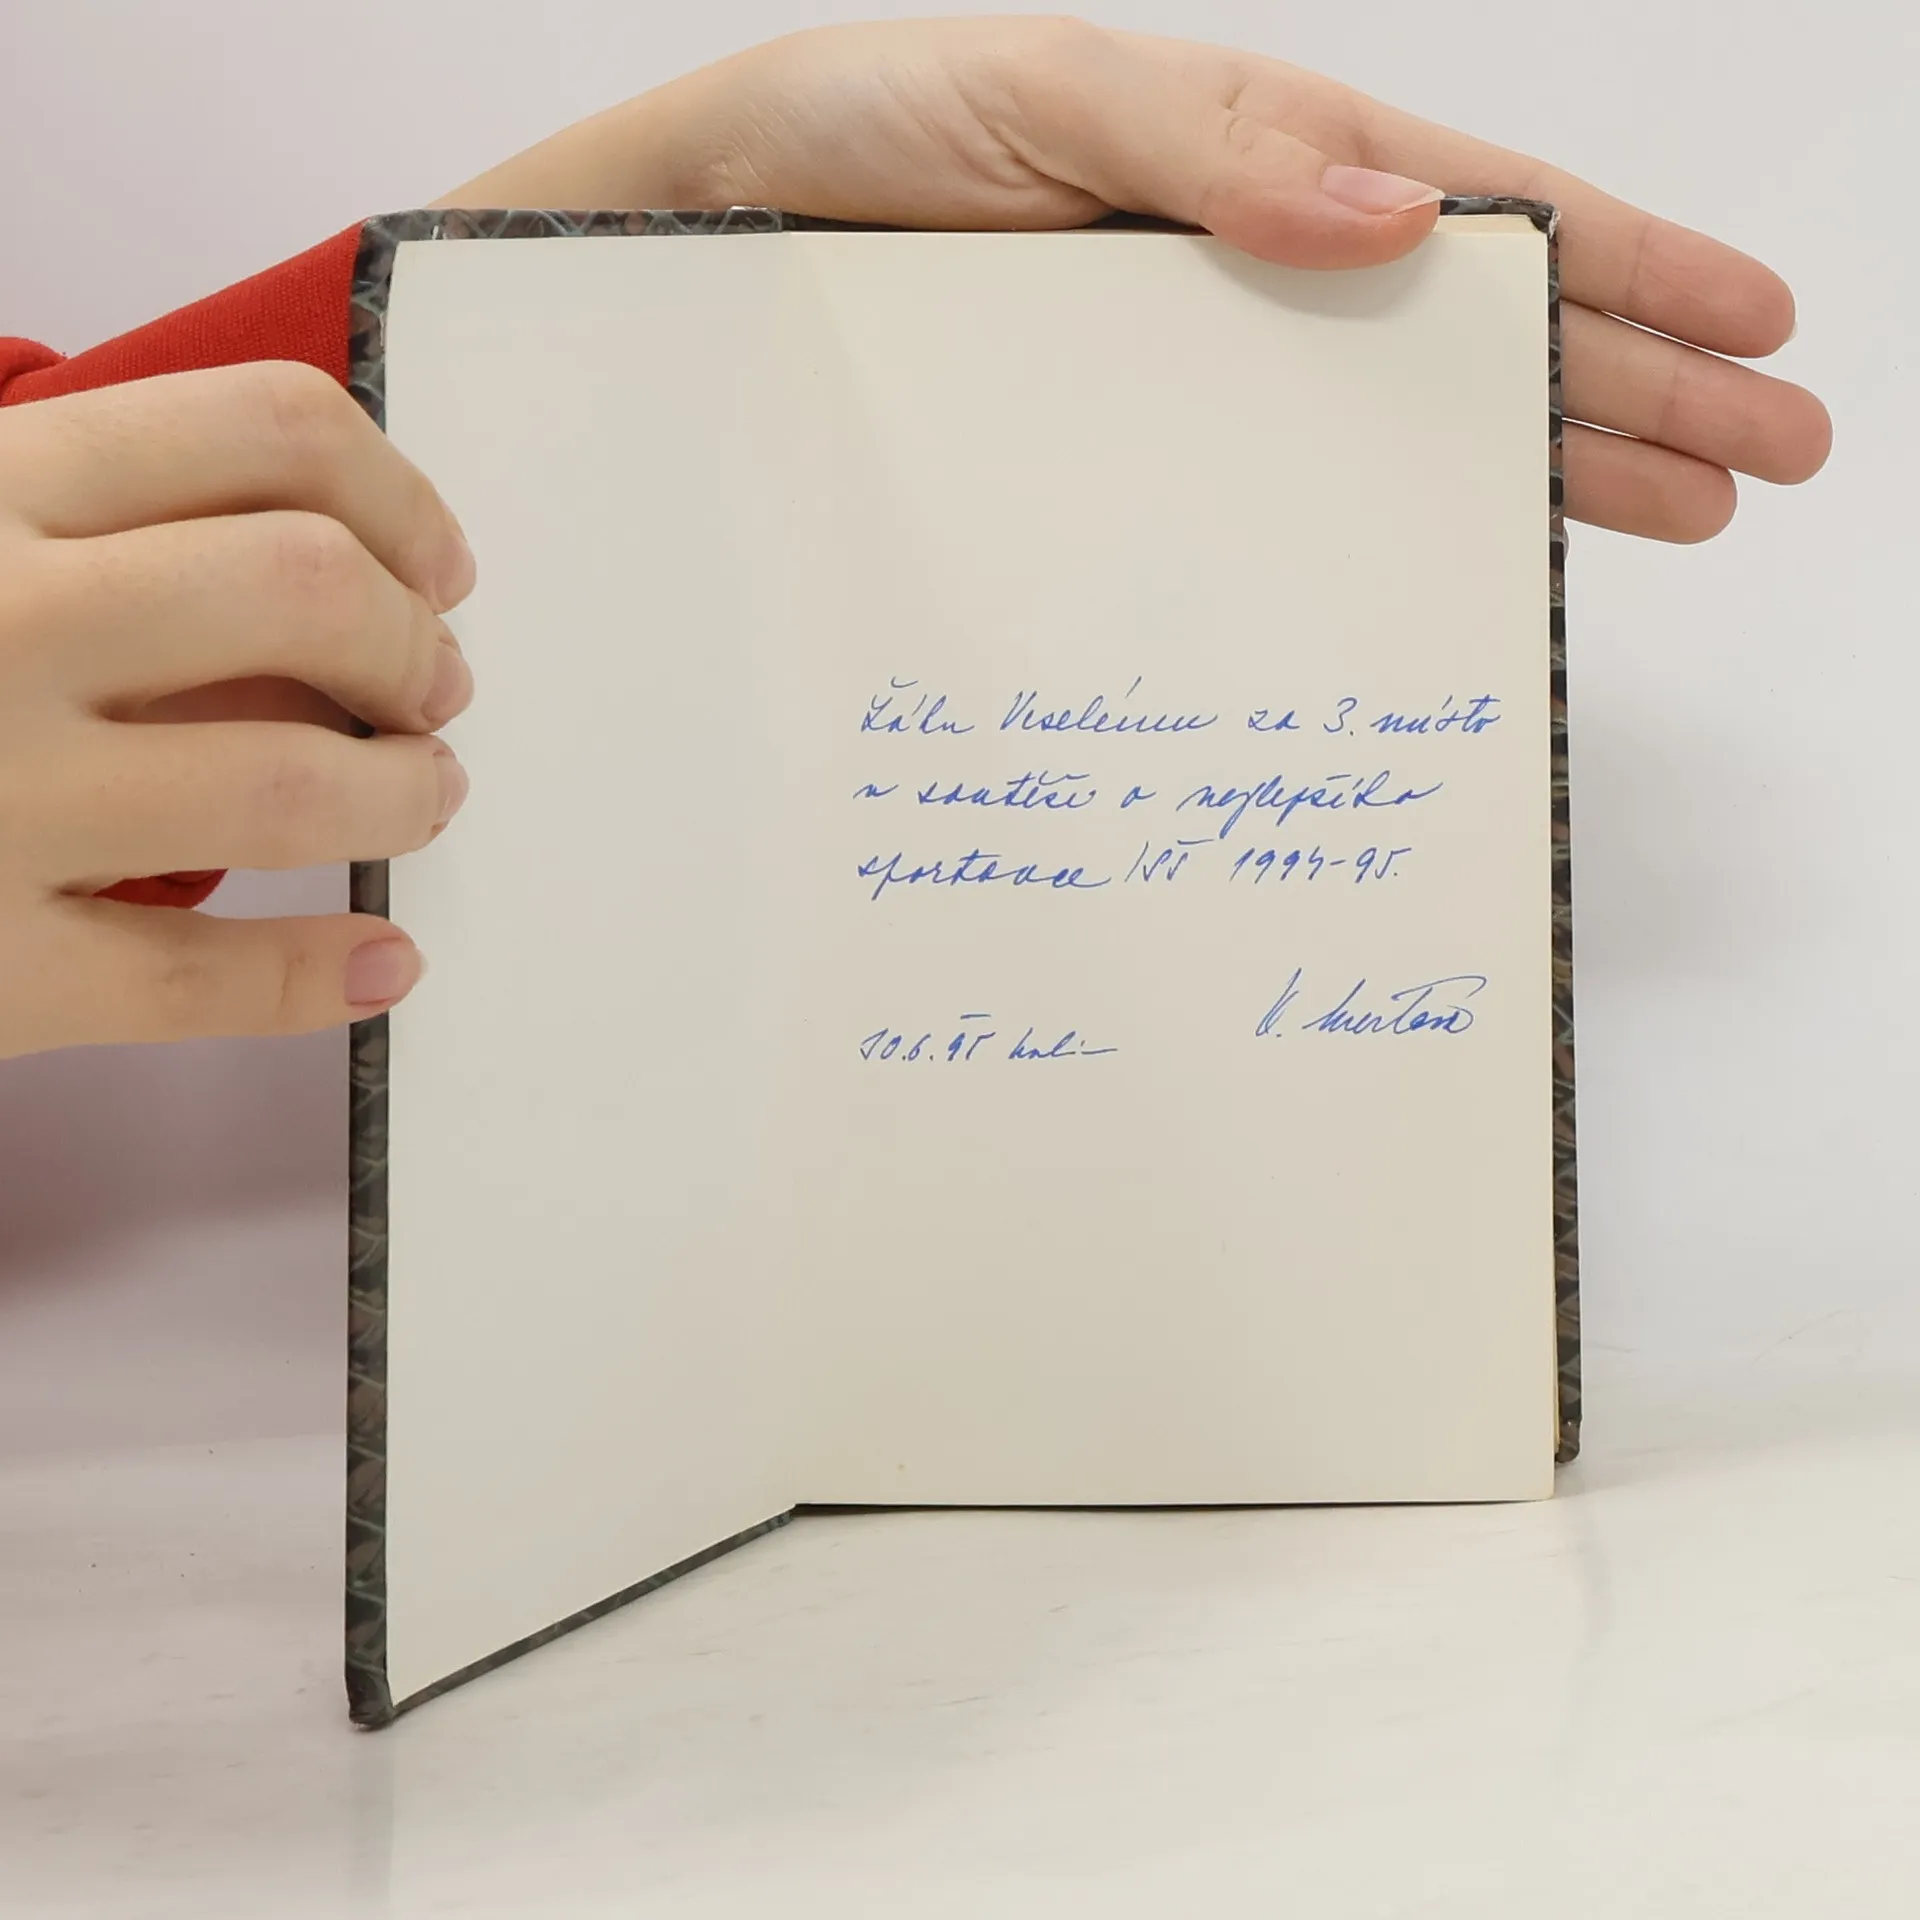 Žáku Veselému za 3. místo
v soutěži o nejlepšího
sportovce ISŠ 1994-95.
30.6.95 Kolín